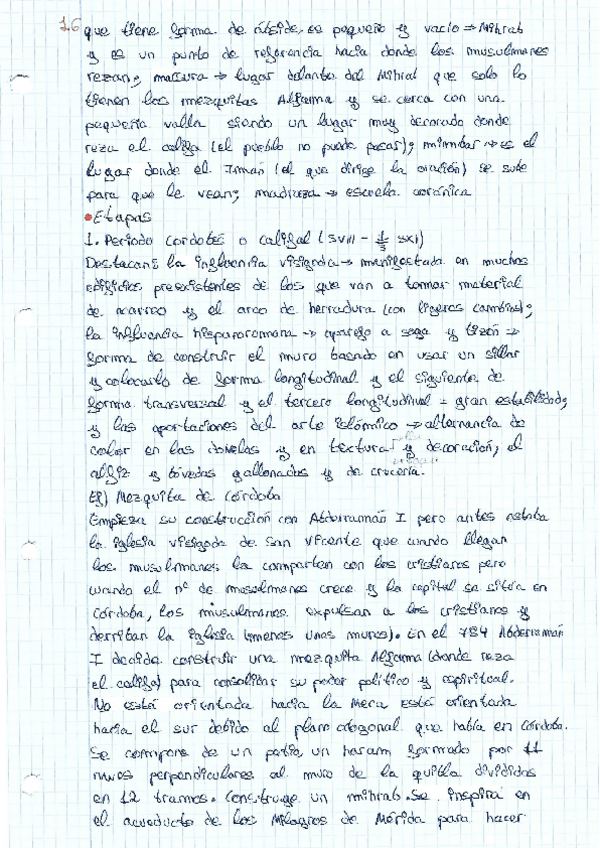 16 que tiene forma de ábside, es pequeño y vacío → Mihrab
y es un punto de referencia hacia donde los musulmanes
rezan; macsura → lugar delante del Mihrab que solo lo
tienen las mezquitas Aljama y se cerca con una
pequeña valla siendo un lugar muy decorado donde
reza el califa (el pueblo no puede pasar); mimbar → es el
lugar donde el Iman (el que dirige la oración) se sube
para que le vean; madraza → escuela coránica
• Etapas
1. Periodo cordobés o califal (SVIII - 1/3 SXI)
Destacan: la influencia visigoda → manifestada en muchos
edificios preexistentes de los que van a tomar material
de acarreo y el arco de herradura (con ligeros cambios);
la influencia hispanorromana → aparejo a soga y tizón →
forma de construir el muro basado en usar un sillar
y colocarlo de forma longitudinal y el siguiente de
forma transversal y el tercero longitudinal = gran estabilidad;
y las aportaciones del arte islámico → alternancia de
color en las dovelas y en textura y decoración, el
alfiz y bóvedas gallonadas y de crucería.
Ej) Mezquita de Córdoba
Empieza su construcción con Abderramán I pero antes estaba
la iglesia visigoda de San Vicente que cuando llegan
los musulmanes la comparten con los cristianos pero
cuando el nº de musulmanes crece y la capital se sitúa en
Córdoba, los musulmanes expulsan a los cristianos y
derriban la iglesia (menos unos muros). En el 784 Abderramán
I decide construir una mezquita Aljama (donde reza
el califa) para consolidar su poder político y espiritual.
No está orientada hacia la Meca está orientada
hacia el sur debido al plano ortogonal que había en Córdoba.
Se compone de un patio, un haram formado por 11
naves perpendiculares al muro de la quibla divididas
en 12 tramos. Construye un mihrab. Se inspira en
el acueducto de los Milagros de Mérida para hacer